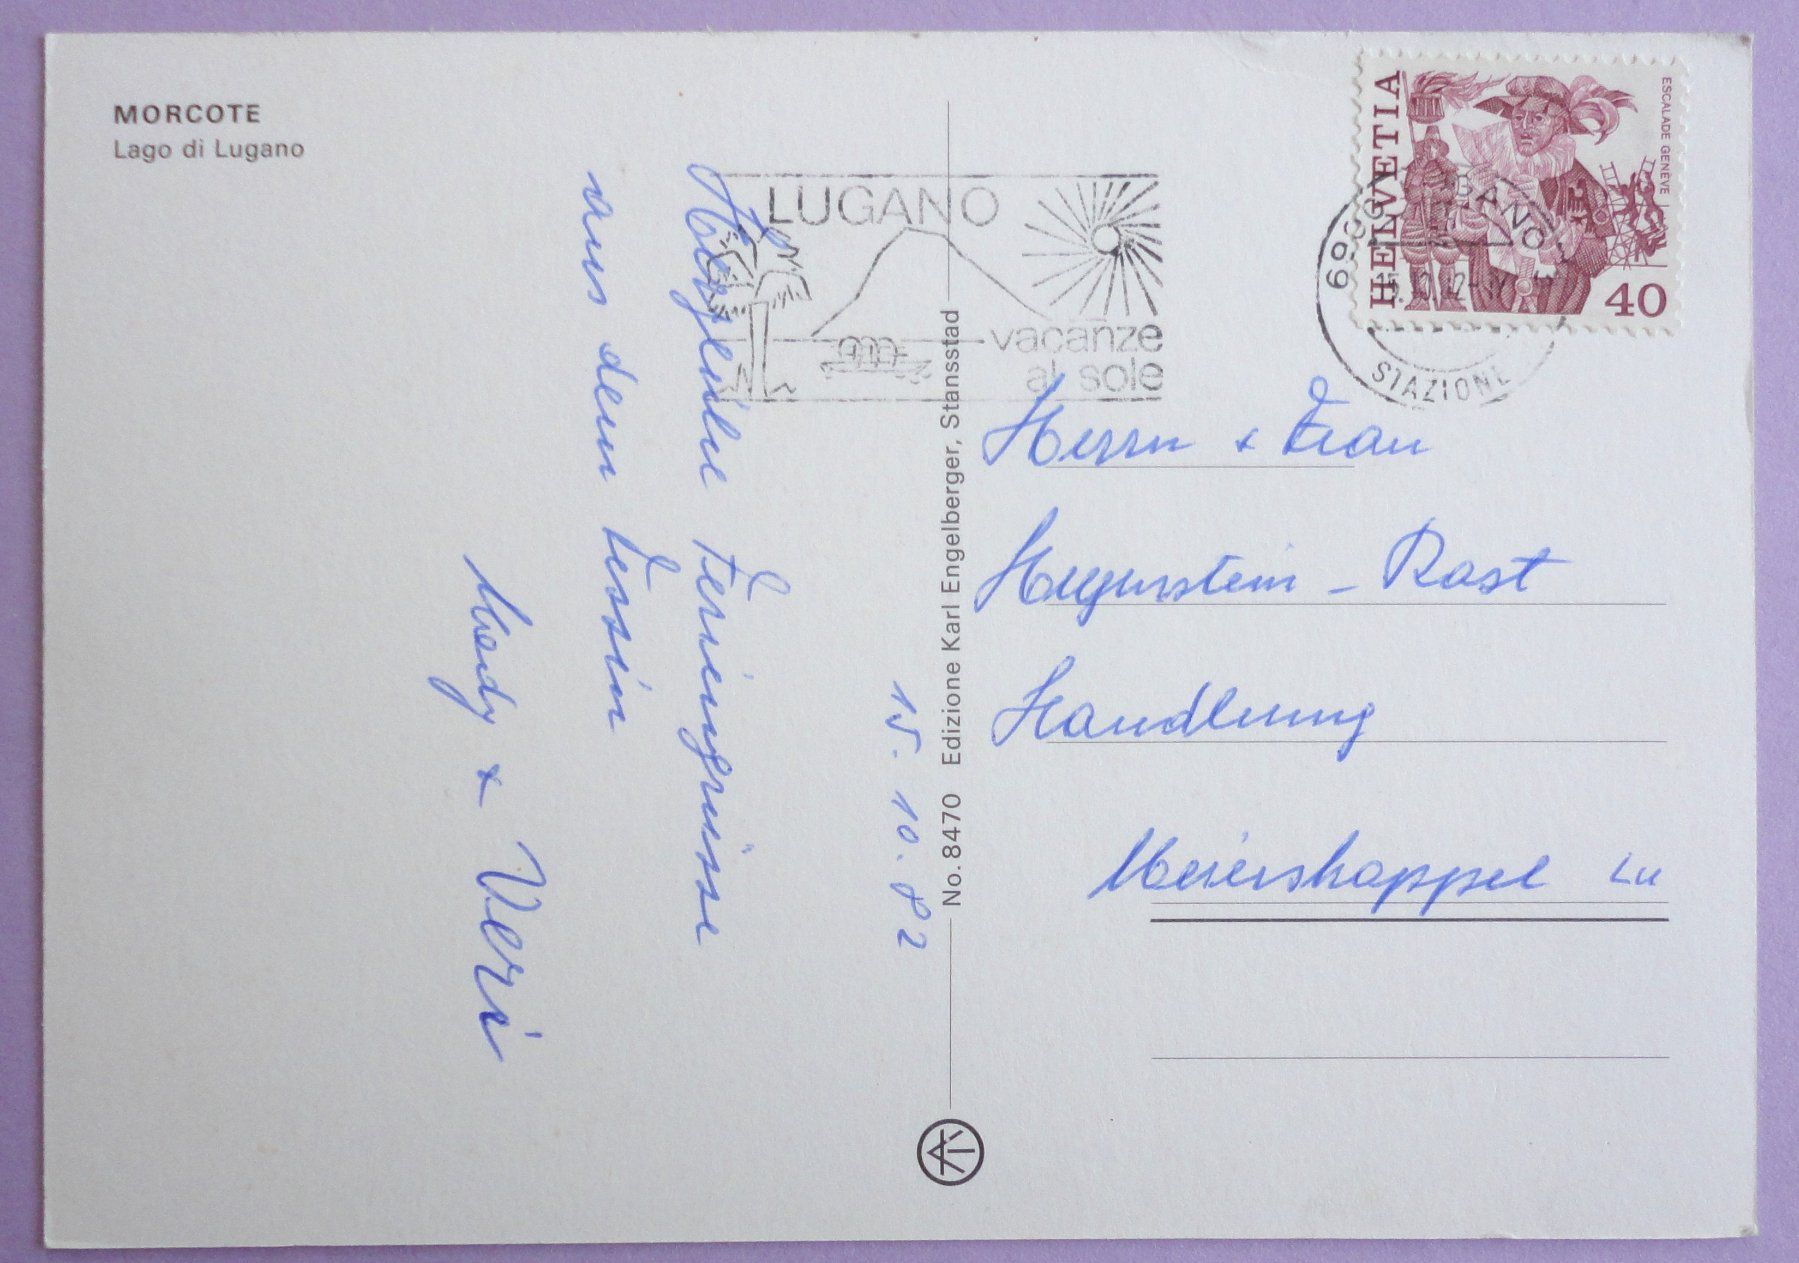 MORCOTE
Lago di Lugano
LUGANO
vacanze
al sole
HELVETIA
ESCALADE GENÈVE
40
6900 LUGANO
STAZIONE
Herzliche Feriengrüsse
aus dem Tessin
Mady + Veri
15. 10. 82
No. 8470 Edizione Karl Engelberger, Stansstad
Herrn + Frau
Hugenstein - Rast
Handlung
Meierskappel Lu